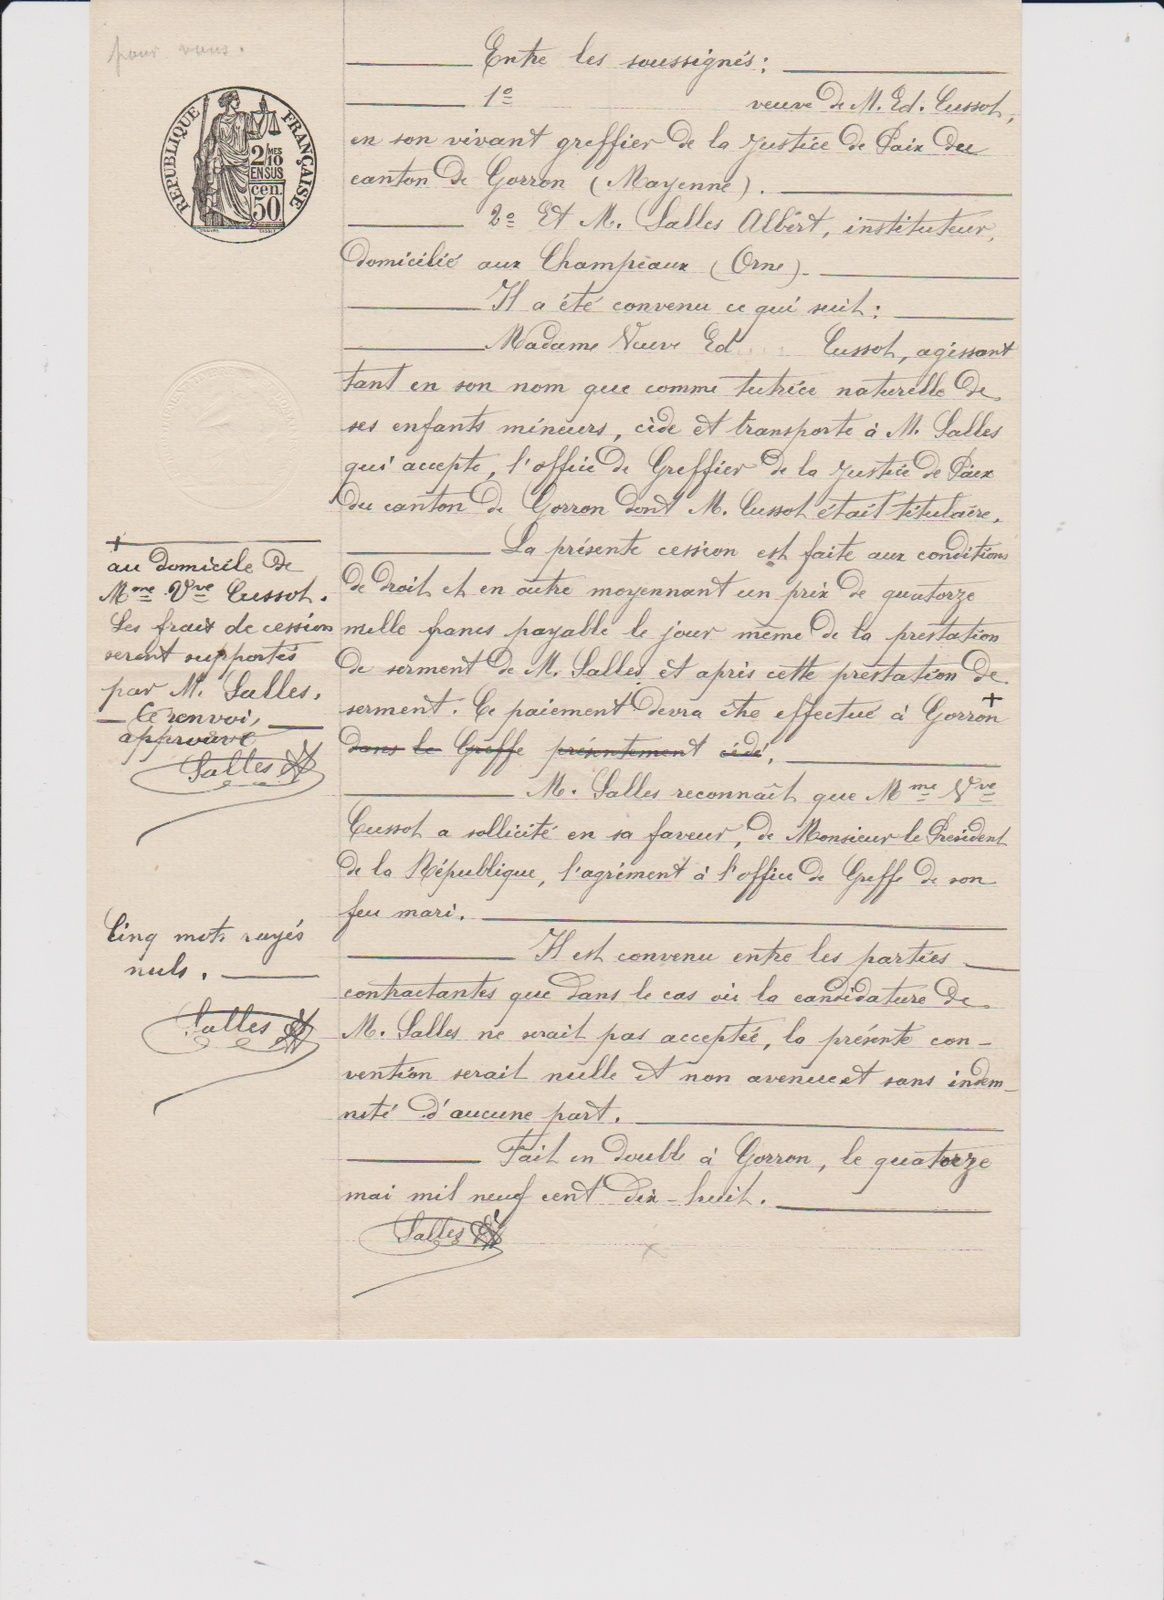 pour vous.
RÉPUBLIQUE FRANÇAISE
2/MES
10
EN SUS
cen.
50
Entre les soussignés :
1º veuve de M. Ed. Cussot,
en son vivant greffier de la Justice de Paix du
canton de Gorron (Mayenne).
2º Et M. Salles Albert, instituteur,
domicilié aux Champeaux (Orne).
Il a été convenu ce qui suit :
Madame Veuve Ed Cussot, agissant
tant en son nom que comme tutrice naturelle de
ses enfants mineurs, cède et transporte à M. Salles
qui accepte, l'office de Greffier de la Justice de Paix
du canton de Gorron dont M. Cussot était titulaire.
La présente cession est faite aux conditions
de droit et en outre moyennant un prix de quatorze
mille francs payable le jour même de la prestation
de serment de M. Salles et après cette prestation de
serment. Ce paiement devra être effectué à Gorron +
dans le Greffe présentement cédé.
M. Salles reconnaît que Mme Vve
Cussot a sollicité en sa faveur, de Monsieur le Président
de la République, l'agrément à l'office de Greffe de son
feu mari.
Il est convenu entre les parties
contractantes que dans le cas où la candidature de
M. Salles ne serait pas acceptée, la présente con-
vention serait nulle et non avenue et sans indem-
nité d'aucune part.
Fait en double à Gorron, le quatorze
mai mil neuf cent dix-huit.
Salles A
+
au domicile de
Mme Vve Cussot.
Les frais de cession
seront supportés
par M. Salles.
Ce renvoi,
approuvé
Salles A
Cinq mots rayés
nuls.
Salles A